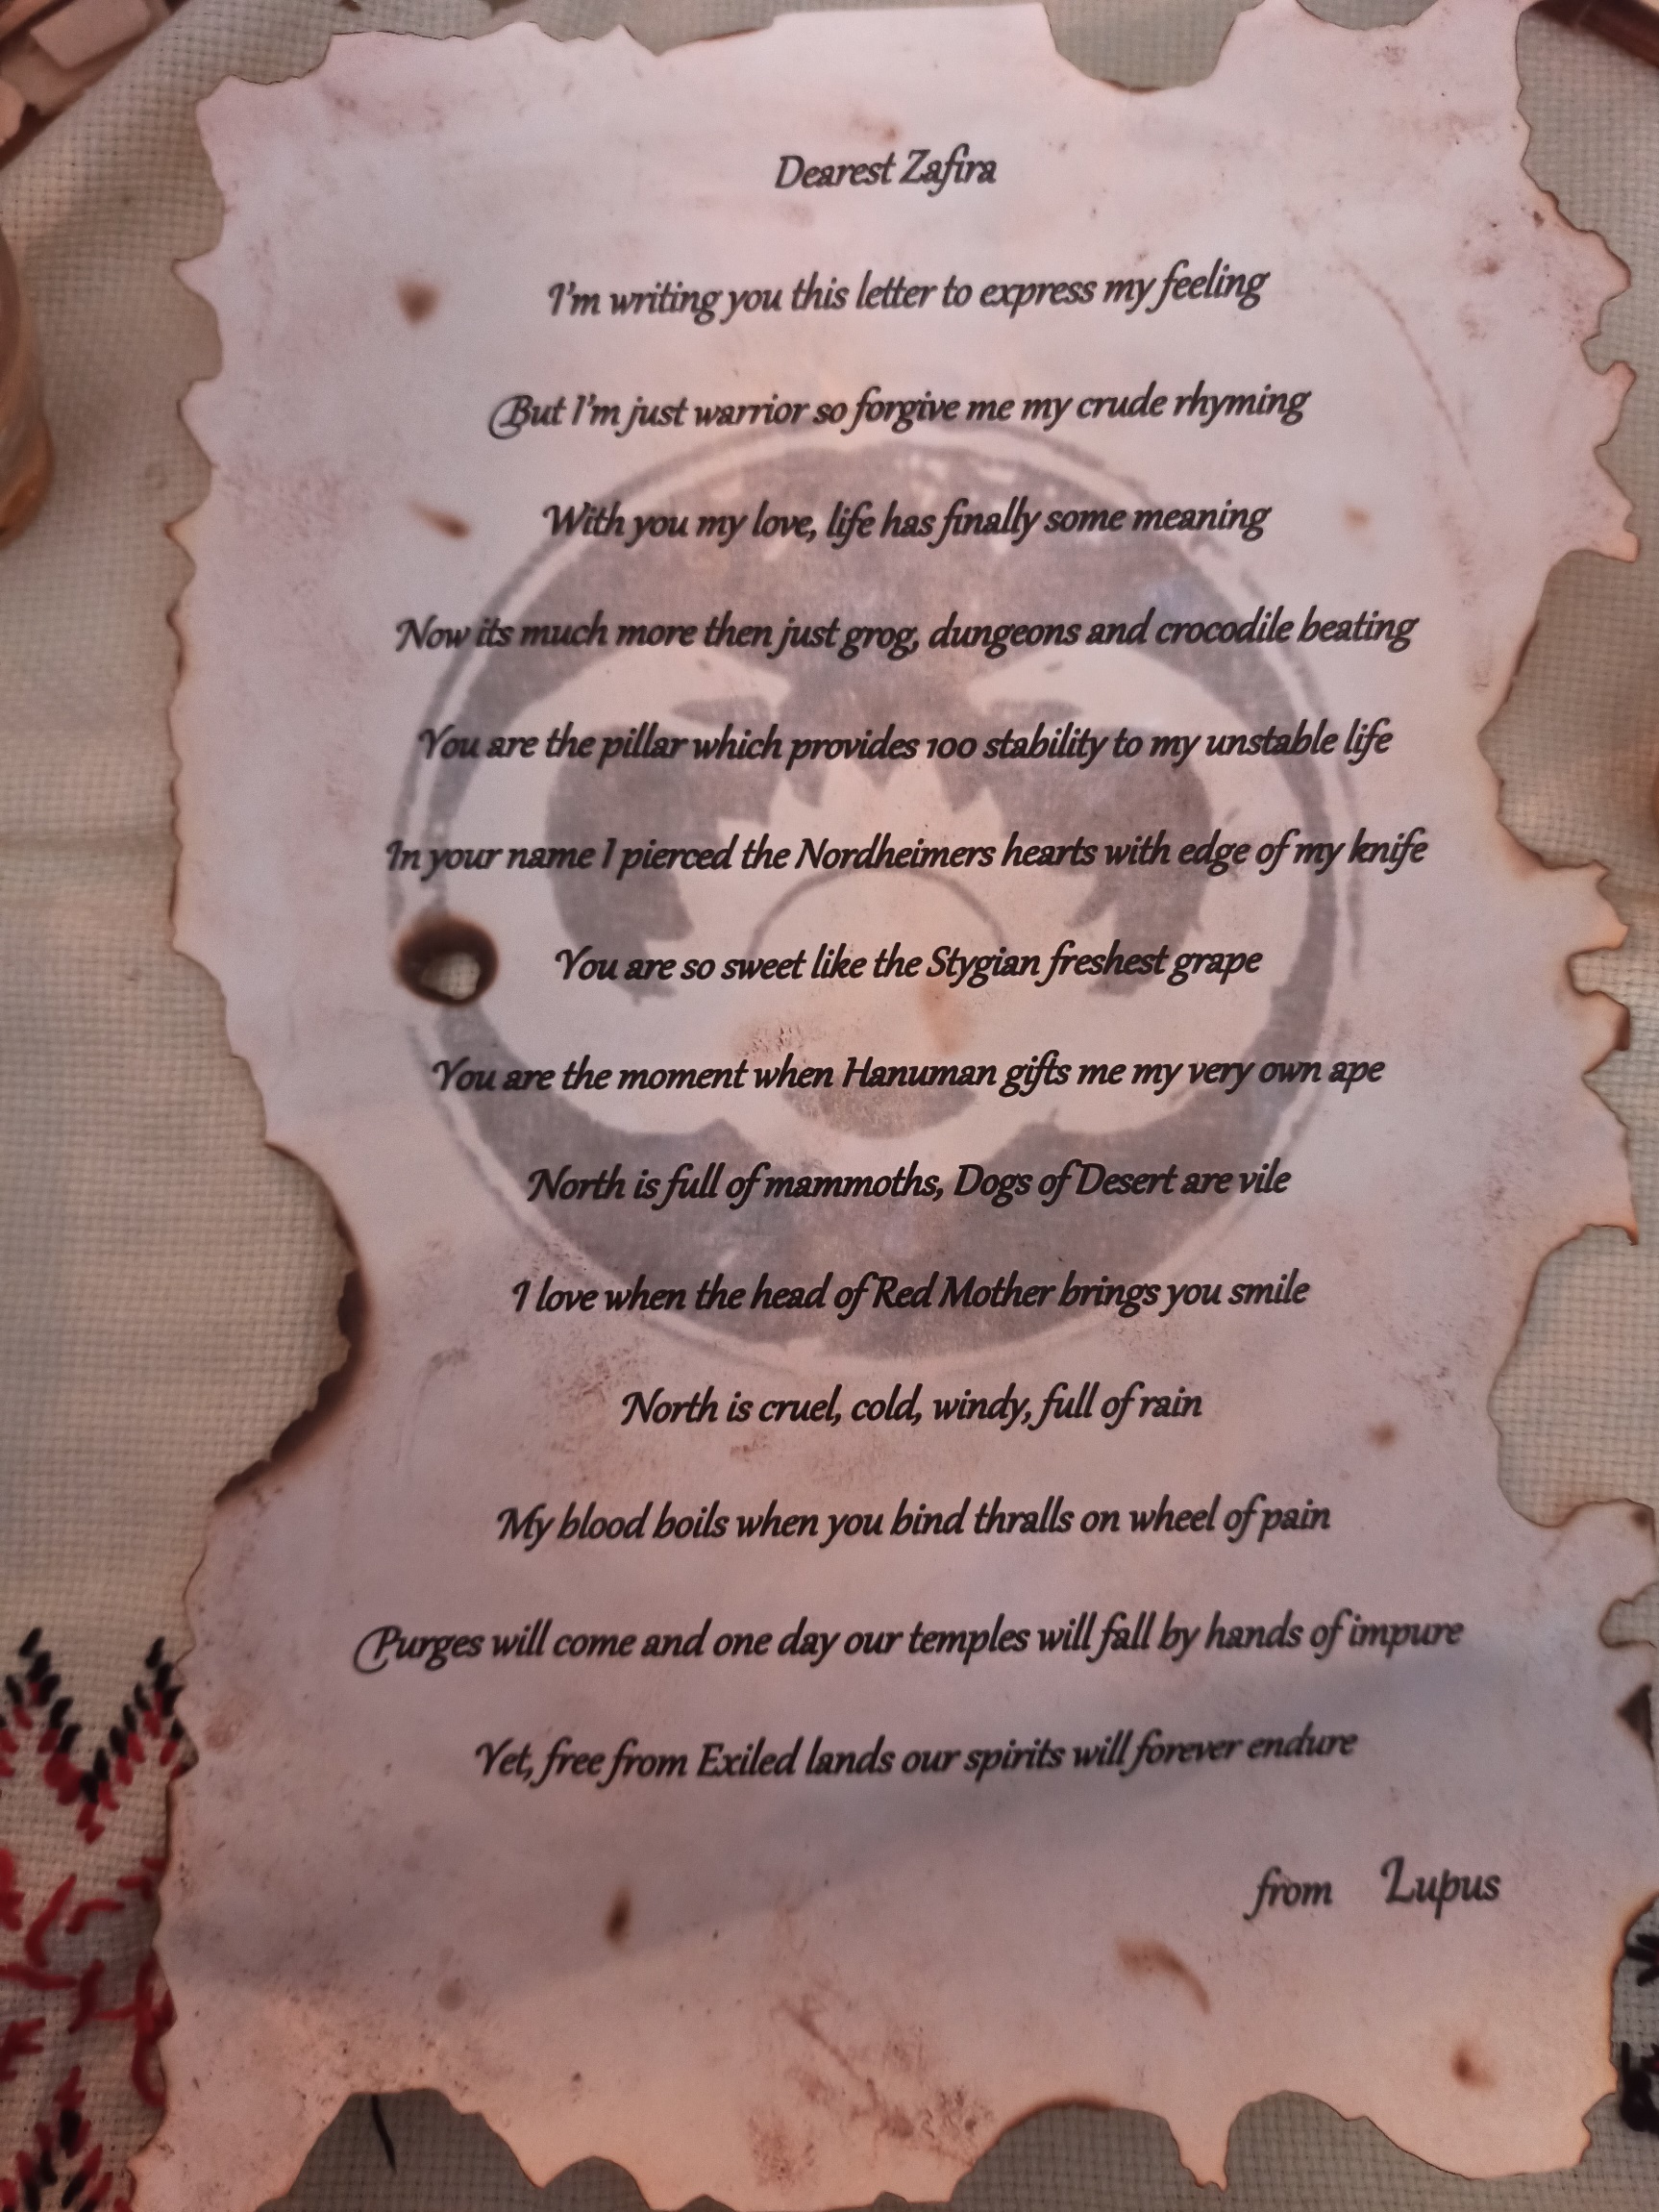 Dearest Zafira
I'm writing you this letter to express my feeling
But I'm just warrior so forgive me my crude rhyming
With you my love, life has finally some meaning
Now its much more then just grog, dungeons and crocodile beating
You are the pillar which provides 100 stability to my unstable life
In your name I pierced the Nordheimers hearts with edge of my knife
You are so sweet like the Stygian freshest grape
You are the moment when Hanuman gifts me my very own ape
North is full of mammoths, Dogs of Desert are vile
I love when the head of Red Mother brings you smile
North is cruel, cold, windy, full of rain
My blood boils when you bind thralls on wheel of pain
Purges will come and one day our temples will fall by hands of impure
Yet, free from Exiled lands our spirits will forever endure
from Lupus